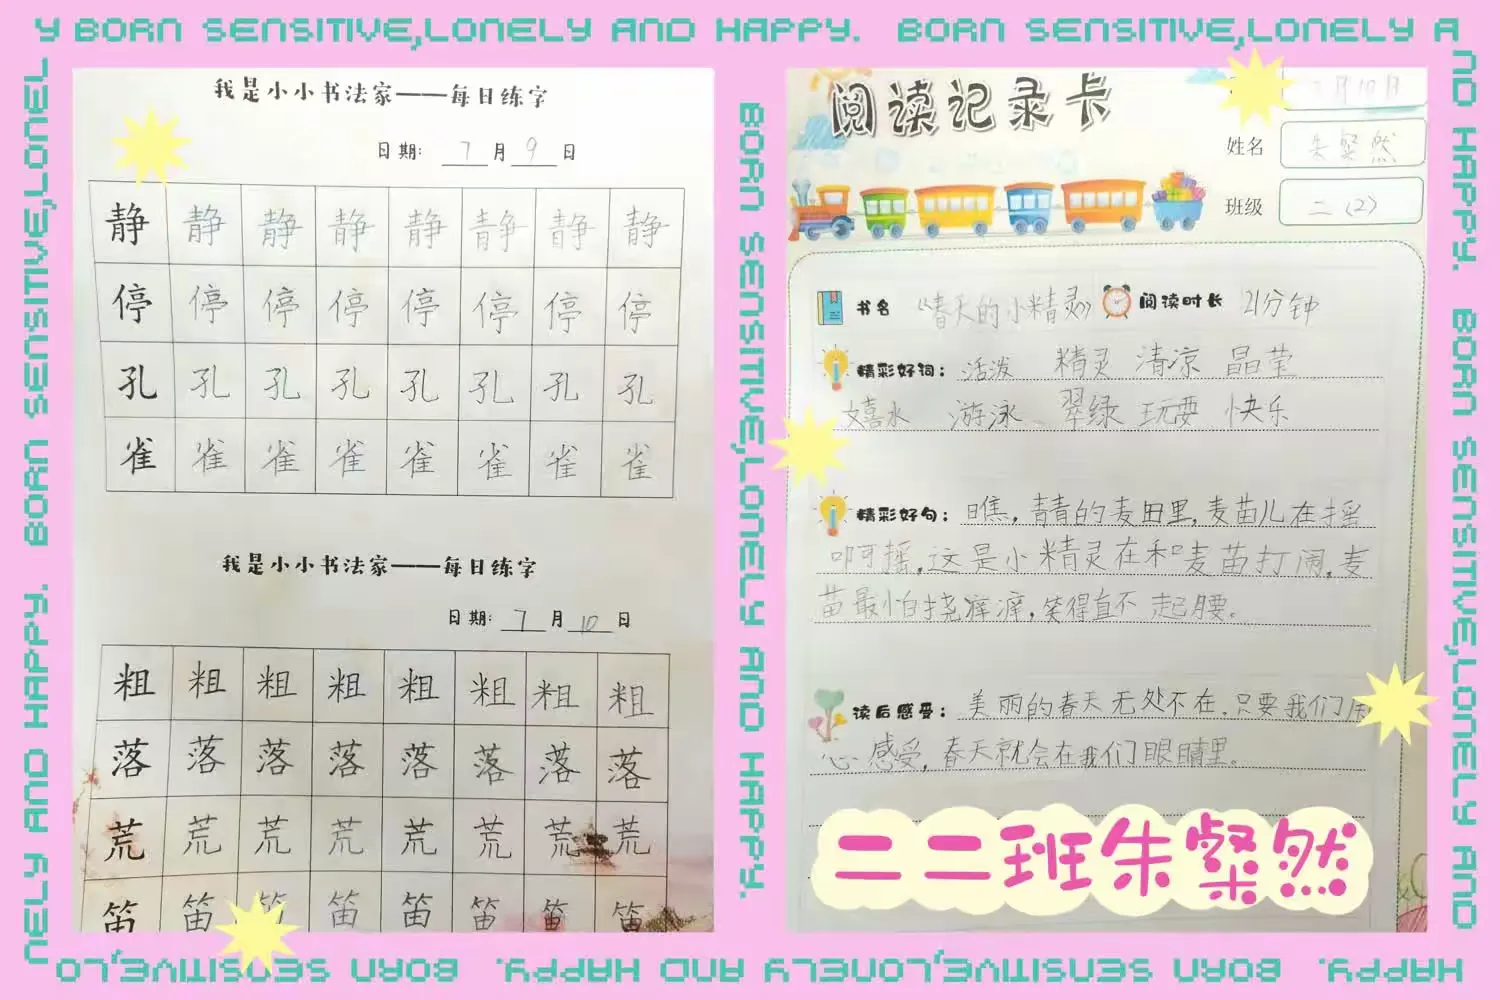 Y BORN SENSITIVE,LONELY AND HAPPY. BORN SENSITIVE,LONELY A
ND HAPPY. BORN SENSITIVE,LONELY AND
HAPPY. BORN SENSITIVE,LONELY AND HAPPY. BORN SENSITIVE,LO
NELY AND HAPPY. BORN SENSITIVE,LONEL
BORN SENSITIVE,LONELY AND HAPPY.
我是小小书法家——每日练字
日期: 7 月 9 日
静 静 静 静 静 静 静 静
停 停 停 停 停 停 停 停
孔 孔 孔 孔 孔 孔 孔 孔
雀 雀 雀 雀 雀 雀 雀 雀
我是小小书法家——每日练字
日期: 7 月 10 日
粗 粗 粗 粗 粗 粗 粗 粗
落 落 落 落 落 落 落 落
荒 荒 荒 荒 荒 荒 荒 荒
笛 笛 笛 笛 笛 笛 笛 笛
阅读记录卡
月10日
姓名 朱粲然
班级 二(2)
书名 《春天的小精灵》 阅读时长 21分钟
精彩好词: 活泼 精灵 清凉 晶莹
嬉水 游泳 翠绿 玩耍 快乐
精彩好句: 瞧,青青的麦田里,麦苗儿在摇
啊摇,这是小精灵在和麦苗打闹,麦
苗最怕挠痒痒,笑得直不起腰。
读后感受: 美丽的春天无处不在,只要我们用
心感受,春天就会在我们眼睛里。
二二班朱粲然